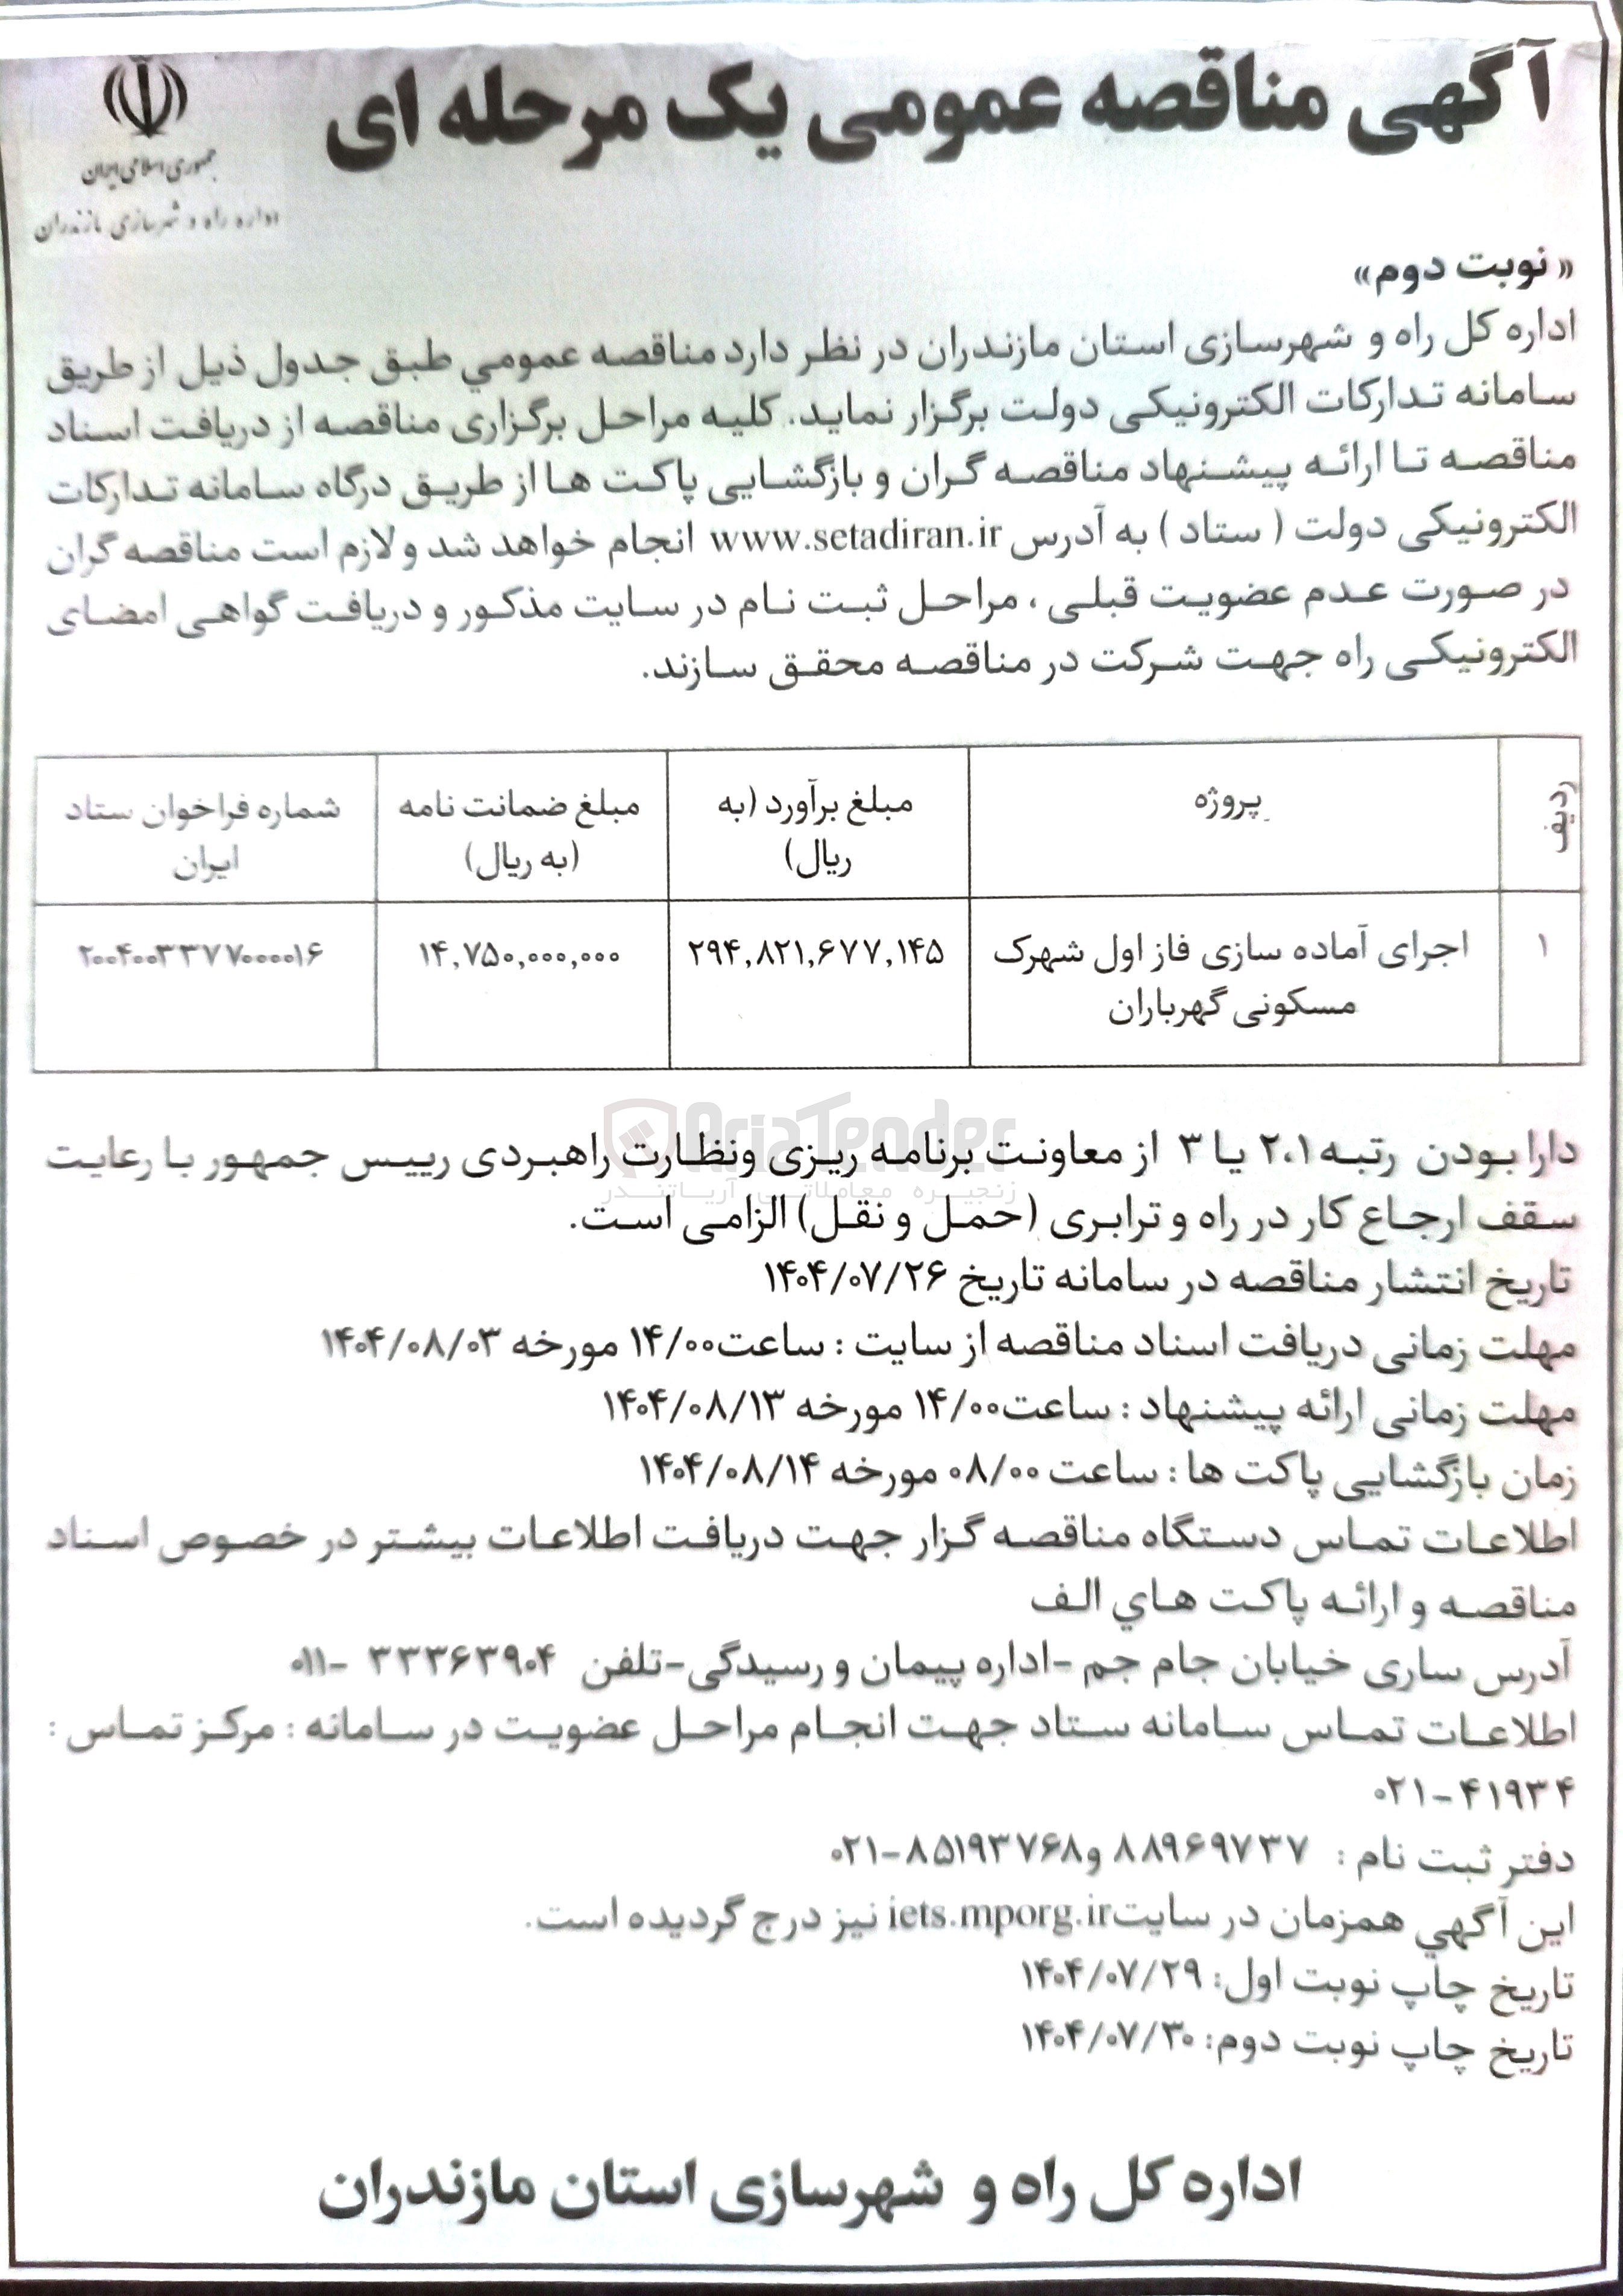 آگهی مناقصه عمومی یک مرحله ای
جمهوری اسلامی ایران
اداره راه و شهرسازی مازندران
« نوبت دوم»
اداره کل راه و شهرسازی استان مازندران در نظر دارد مناقصه عمومي طبق جدول ذیل از طریق
سامانه تدارکات الکترونیکی دولت برگزار نماید. کلیه مراحل برگزاری مناقصه از دریافت اسناد
مناقصه تا ارائه پیشنهاد مناقصه گران و بازگشایی پاکت ها از طریق درگاه سامانه تدارکات
الکترونیکی دولت ( ستاد ) به آدرس www.setadiran.ir انجام خواهد شد و لازم است مناقصه گران
در صورت عدم عضویت قبلی ، مراحل ثبت نام در سایت مذکور و دریافت گواهی امضای
الکترونیکی راه جهت شرکت در مناقصه محقق سازند.
ردیف پروژه مبلغ برآورد (به ریال) مبلغ ضمانت نامه (به ریال) شماره فراخوان ستاد ایران
۱ اجرای آماده سازی فاز اول شهرک مسکونی گهرباران ۲۹۴,۸۲۱,۶۷۷,۱۴۵ ۱۴,۷۵۰,۰۰۰,۰۰۰ ۲۰۰۴۰۰۳۳۷۷۰۰۰۰۱۶
AriaTender
زنجیره معاملاتی آریاتندر
دارا بودن رتبه ۲،۱ یا ۳ از معاونت برنامه ریزی ونظارت راهبردی رییس جمهور با رعایت
سقف ارجاع کار در راه و ترابری (حمل و نقل) الزامی است.
تاریخ انتشار مناقصه در سامانه تاریخ ۱۴۰۴/۰۷/۲۶
مهلت زمانی دریافت اسناد مناقصه از سایت : ساعت۱۴/۰۰ مورخه ۱۴۰۴/۰۸/۰۳
مهلت زمانی ارائه پیشنهاد : ساعت۱۴/۰۰ مورخه ۱۴۰۴/۰۸/۱۳
زمان بازگشایی پاکت ها : ساعت ۰۸/۰۰ مورخه ۱۴۰۴/۰۸/۱۴
اطلاعات تماس دستگاه مناقصه گزار جهت دریافت اطلاعات بیشتر در خصوص اسناد
مناقصه و ارائه پاکت هاي الف
آدرس ساری خیابان جام جم -اداره پیمان و رسیدگی-تلفن ۳۳۳۶۳۹۰۴ -۰۱۱
اطلاعات تماس سامانه ستاد جهت انجام مراحل عضویت در سامانه : مرکز تماس :
۰۲۱-۴۱۹۳۴
دفتر ثبت نام : ۸۸۹۶۹۷۳۷ و۸۵۱۹۳۷۶۸-۰۲۱
این آگهي همزمان در سایتiets.mporg.ir نیز درج گردیده است.
تاریخ چاپ نوبت اول: ۱۴۰۴/۰۷/۲۹
تاریخ چاپ نوبت دوم: ۱۴۰۴/۰۷/۳۰
اداره کل راه و شهرسازی استان مازندران